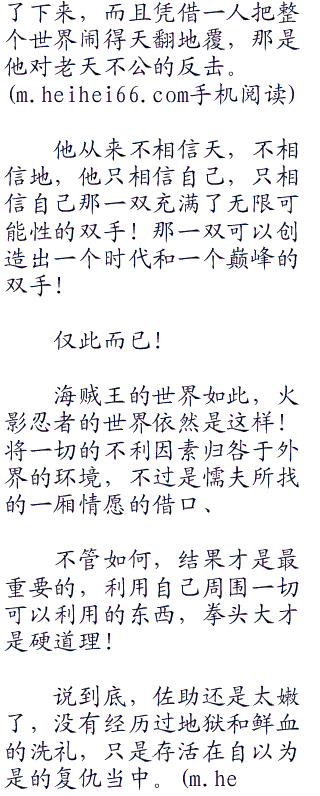 了下来，而且凭借一人把整
个世界闹得天翻地覆，那是
他对老天不公的反击。
(m.heihei66.com手机阅读)
他从来不相信天，不相
信地，他只相信自己，只相
信自己那一双充满了无限可
能性的双手！那一双可以创
造出一个时代和一个巅峰的
双手！
仅此而已！
海贼王的世界如此，火
影忍者的世界依然是这样！
将一切的不利因素归咎于外
界的环境，不过是懦夫所找
的一厢情愿的借口、
不管如何，结果才是最
重要的，利用自己周围一切
可以利用的东西，拳头大才
是硬道理！
说到底，佐助还是太嫩
了，没有经历过地狱和鲜血
的洗礼，只是存活在自以为
是的复仇当中。(m.he